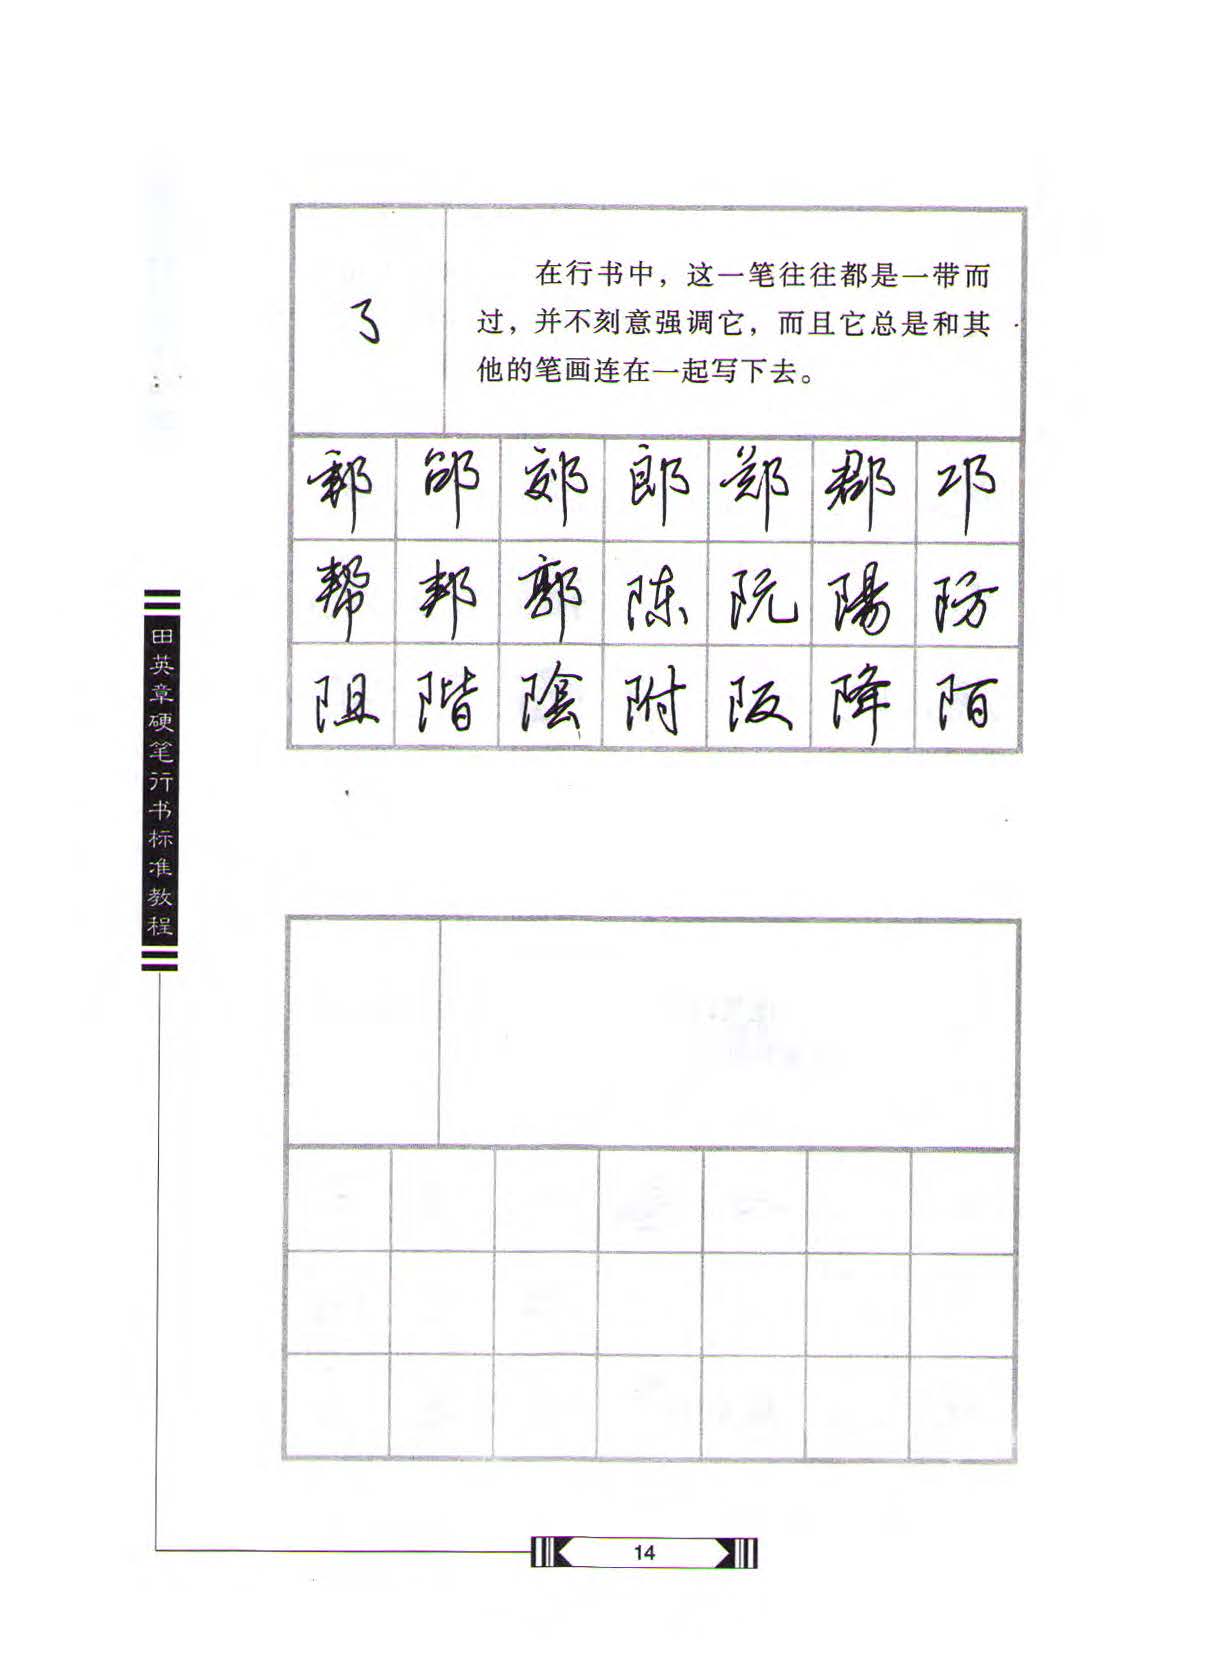 在行书中，这一笔往往都是一带而
过，并不刻意强调它，而且它总是和其
他的笔画连在一起写下去。
邵 郊 郎 郑 郡 邛
帮 邦 郭 陈 阮 陽 防
阻 階 陰 附 阪 降 陌
田英章硬笔行书标准教程
14